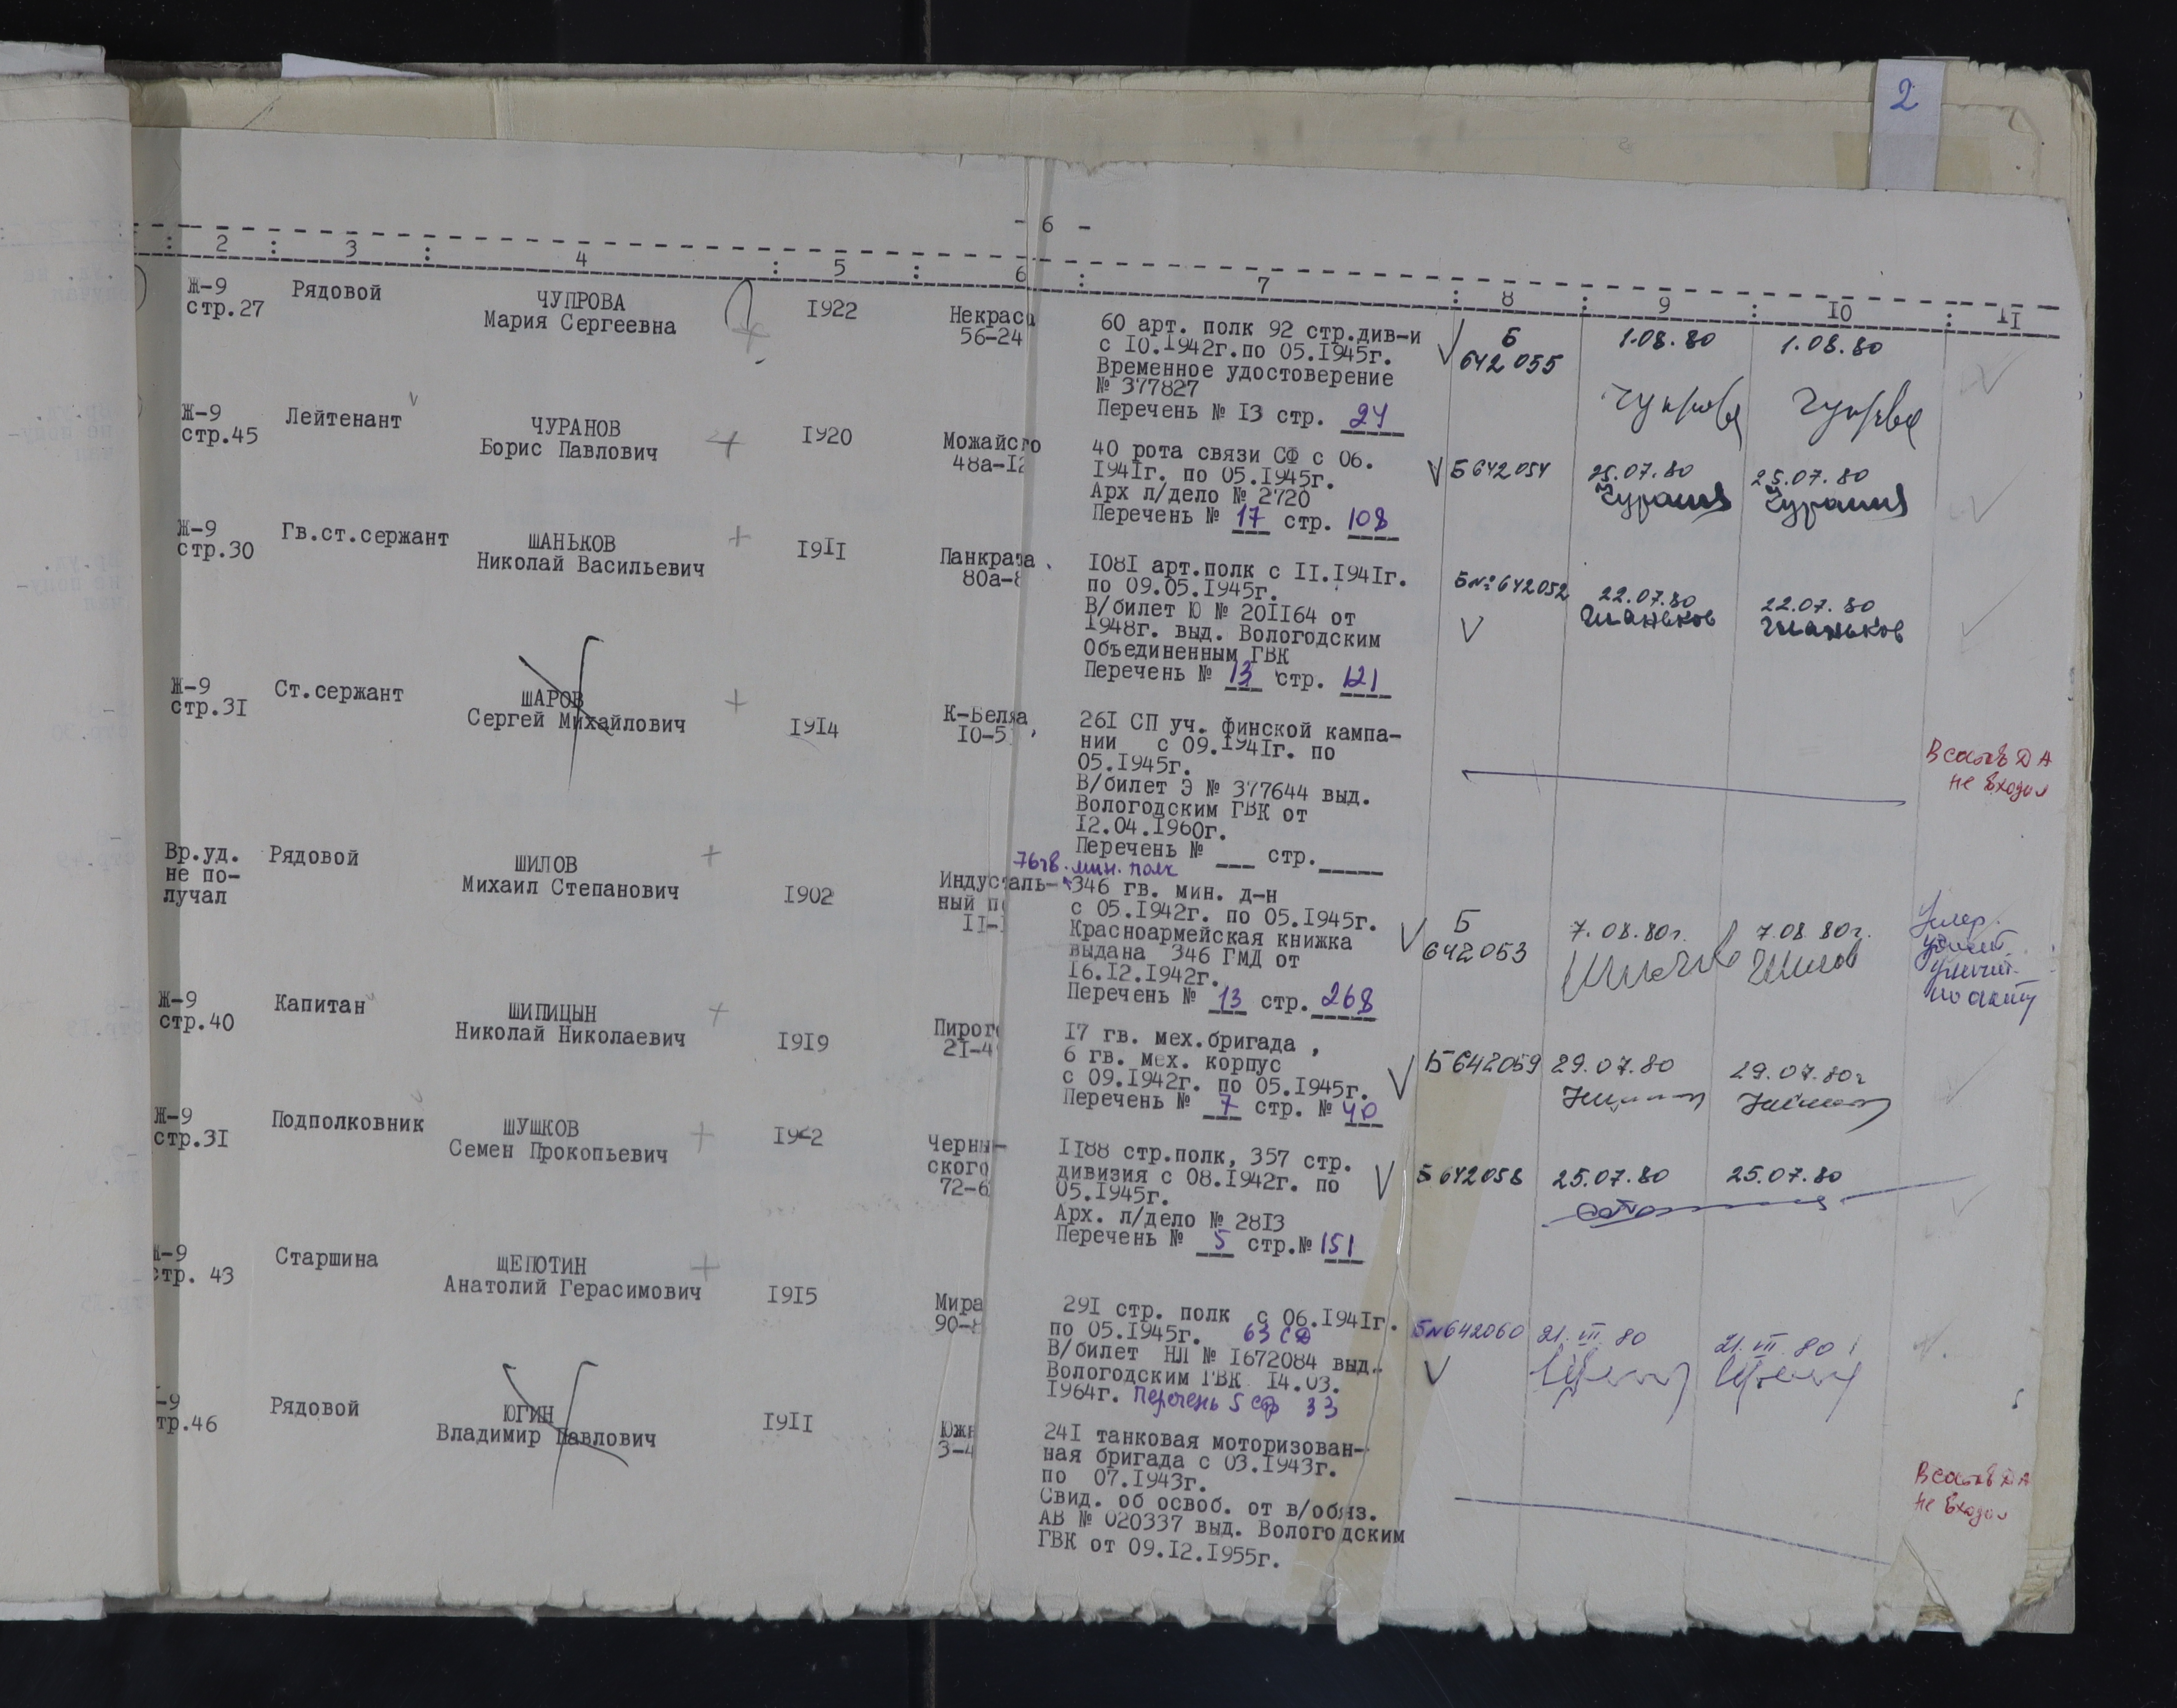 2
- 6 -
2 : 3 : 4 : 5 : 6 : 7 : 8 : 9 : 10 : 11
Ж-9
стр.27
Рядовой
ЧУПРОВА
Мария Сергеевна
1922
Некрасо
56-24
60 арт. полк 92 стр.див-и
с 10.1942г.по 05.1945г.
Временное удостоверение
№ 377827
Перечень № 13 стр. 24
Б
642055
1.08.80
1.08.80
Ж-9
стр.45
Лейтенант
ЧУРАНОВ
Борис Павлович
1920
Можайсго
48а-12
40 рота связи СФ с 06.
1941г. по 05.1945г.
Арх л/дело № 2720
Перечень № 17 стр. 108
Б 642054
25.07.80
25.07.80
Ж-9
стр.30
Гв.ст.сержант
ШАНЬКОВ
Николай Васильевич
1911
Панкрата
80а-8
1081 арт.полк с 11.1941г.
по 09.05.1945г.
В/билет Ю № 201164 от
1948г. выд. Вологодским
Объединенным ГВК
Перечень № 13 стр. 121
Б№ 642052
22.07.80
Шаньков
22.07.80
Шаньков
Ж-9
стр.31
Ст.сержант
ШАРОВ
Сергей Михайлович
1914
К-Беляа
10-5
261 СП уч. финской кампа-
нии с 09.1941г. по
05.1945г.
В/билет Э № 377644 выд.
Вологодским ГВК от
12.04.1960г.
Перечень № ___ стр._____
В состав ДА
не входил
Вр.уд.
не по-
лучал
Рядовой
ШИЛОВ
Михаил Степанович
1902
Индусталь-
ный п
11-
76 гв. мин. полк
346 гв. мин. д-н
с 05.1942г. по 05.1945г.
Красноармейская книжка
выдана 346 ГМД от
16.12.1942г.
Перечень № 13 стр. 268
Б
642053
7.08.80г.
7.08.80г.
Шилов
Умер.
по акту
Ж-9
стр.40
Капитан
ШИПИЦЫН
Николай Николаевич
1919
Пирого
21-4
17 гв. мех.бригада ,
6 гв. мех. корпус
с 09.1942г. по 05.1945г.
Перечень № 7 стр. № 40
Б 642059
29.07.80
29.07.80г
Ж-9
стр.31
Подполковник
ШУШКОВ
Семен Прокопьевич
Черны-
ского
72-6
1188 стр.полк, 357 стр.
дивизия с 08.1942г. по
05.1945г.
Арх. л/дело № 2813
Перечень № 5 стр.№ 151
Б 642058
25.07.80
25.07.80
Ж-9
стр. 43
Старшина
ЩЕПОТИН
Анатолий Герасимович
1915
Мира
90-8
291 стр. полк с 06.1941г.
по 05.1945г. 63 СД
В/билет НЛ № 1672084 выд.
Вологодским ГВК 14.03.
1964г. Перечень 5 стр 33
Б№ 642060
21.VII.80
21.VII.80
-9
тр.46
Рядовой
ЮГИН
Владимир Павлович
1911
Южн
3-4
241 танковая моторизован-
ная бригада с 03.1943г.
по 07.1943г.
Свид. об освоб. от в/обяз.
АВ № 020337 выд. Вологодским
ГВК от 09.12.1955г.
В состав ДА
не входил